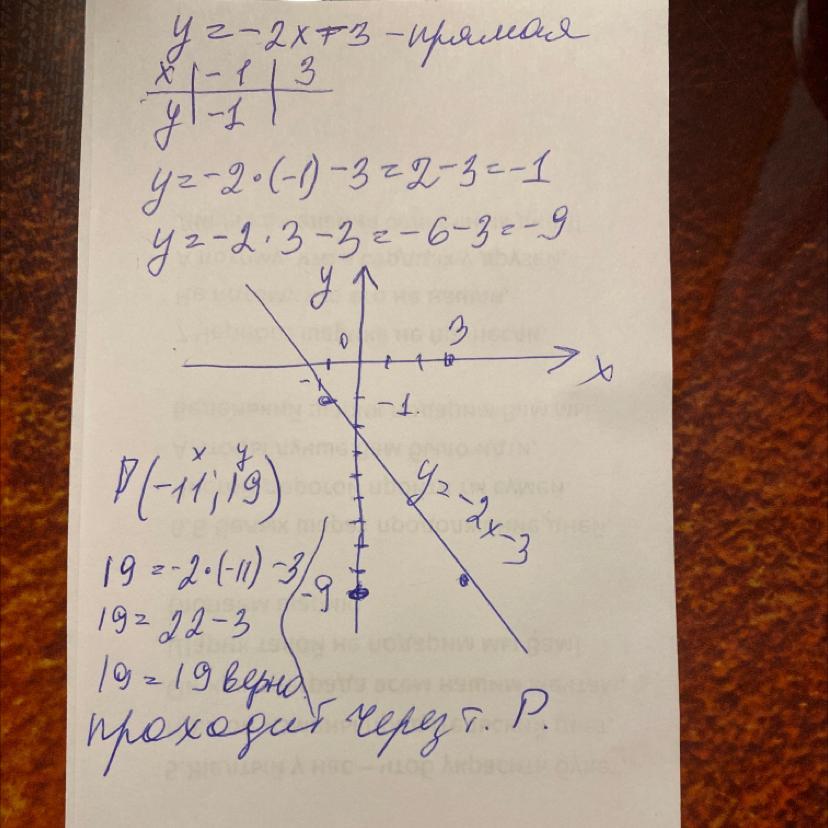 y = -2x - 3 - прямая
x | -1 | 3
y | -1 |
y = -2 · (-1) - 3 = 2 - 3 = -1
y = -2 · 3 - 3 = -6 - 3 = -9
y
0
3
x
-1
-1
x y
P(-11; 19)
y = -2x - 3
19 = -2 · (-11) - 3
-9
19 = 22 - 3
19 = 19 верно
проходит через т. P.